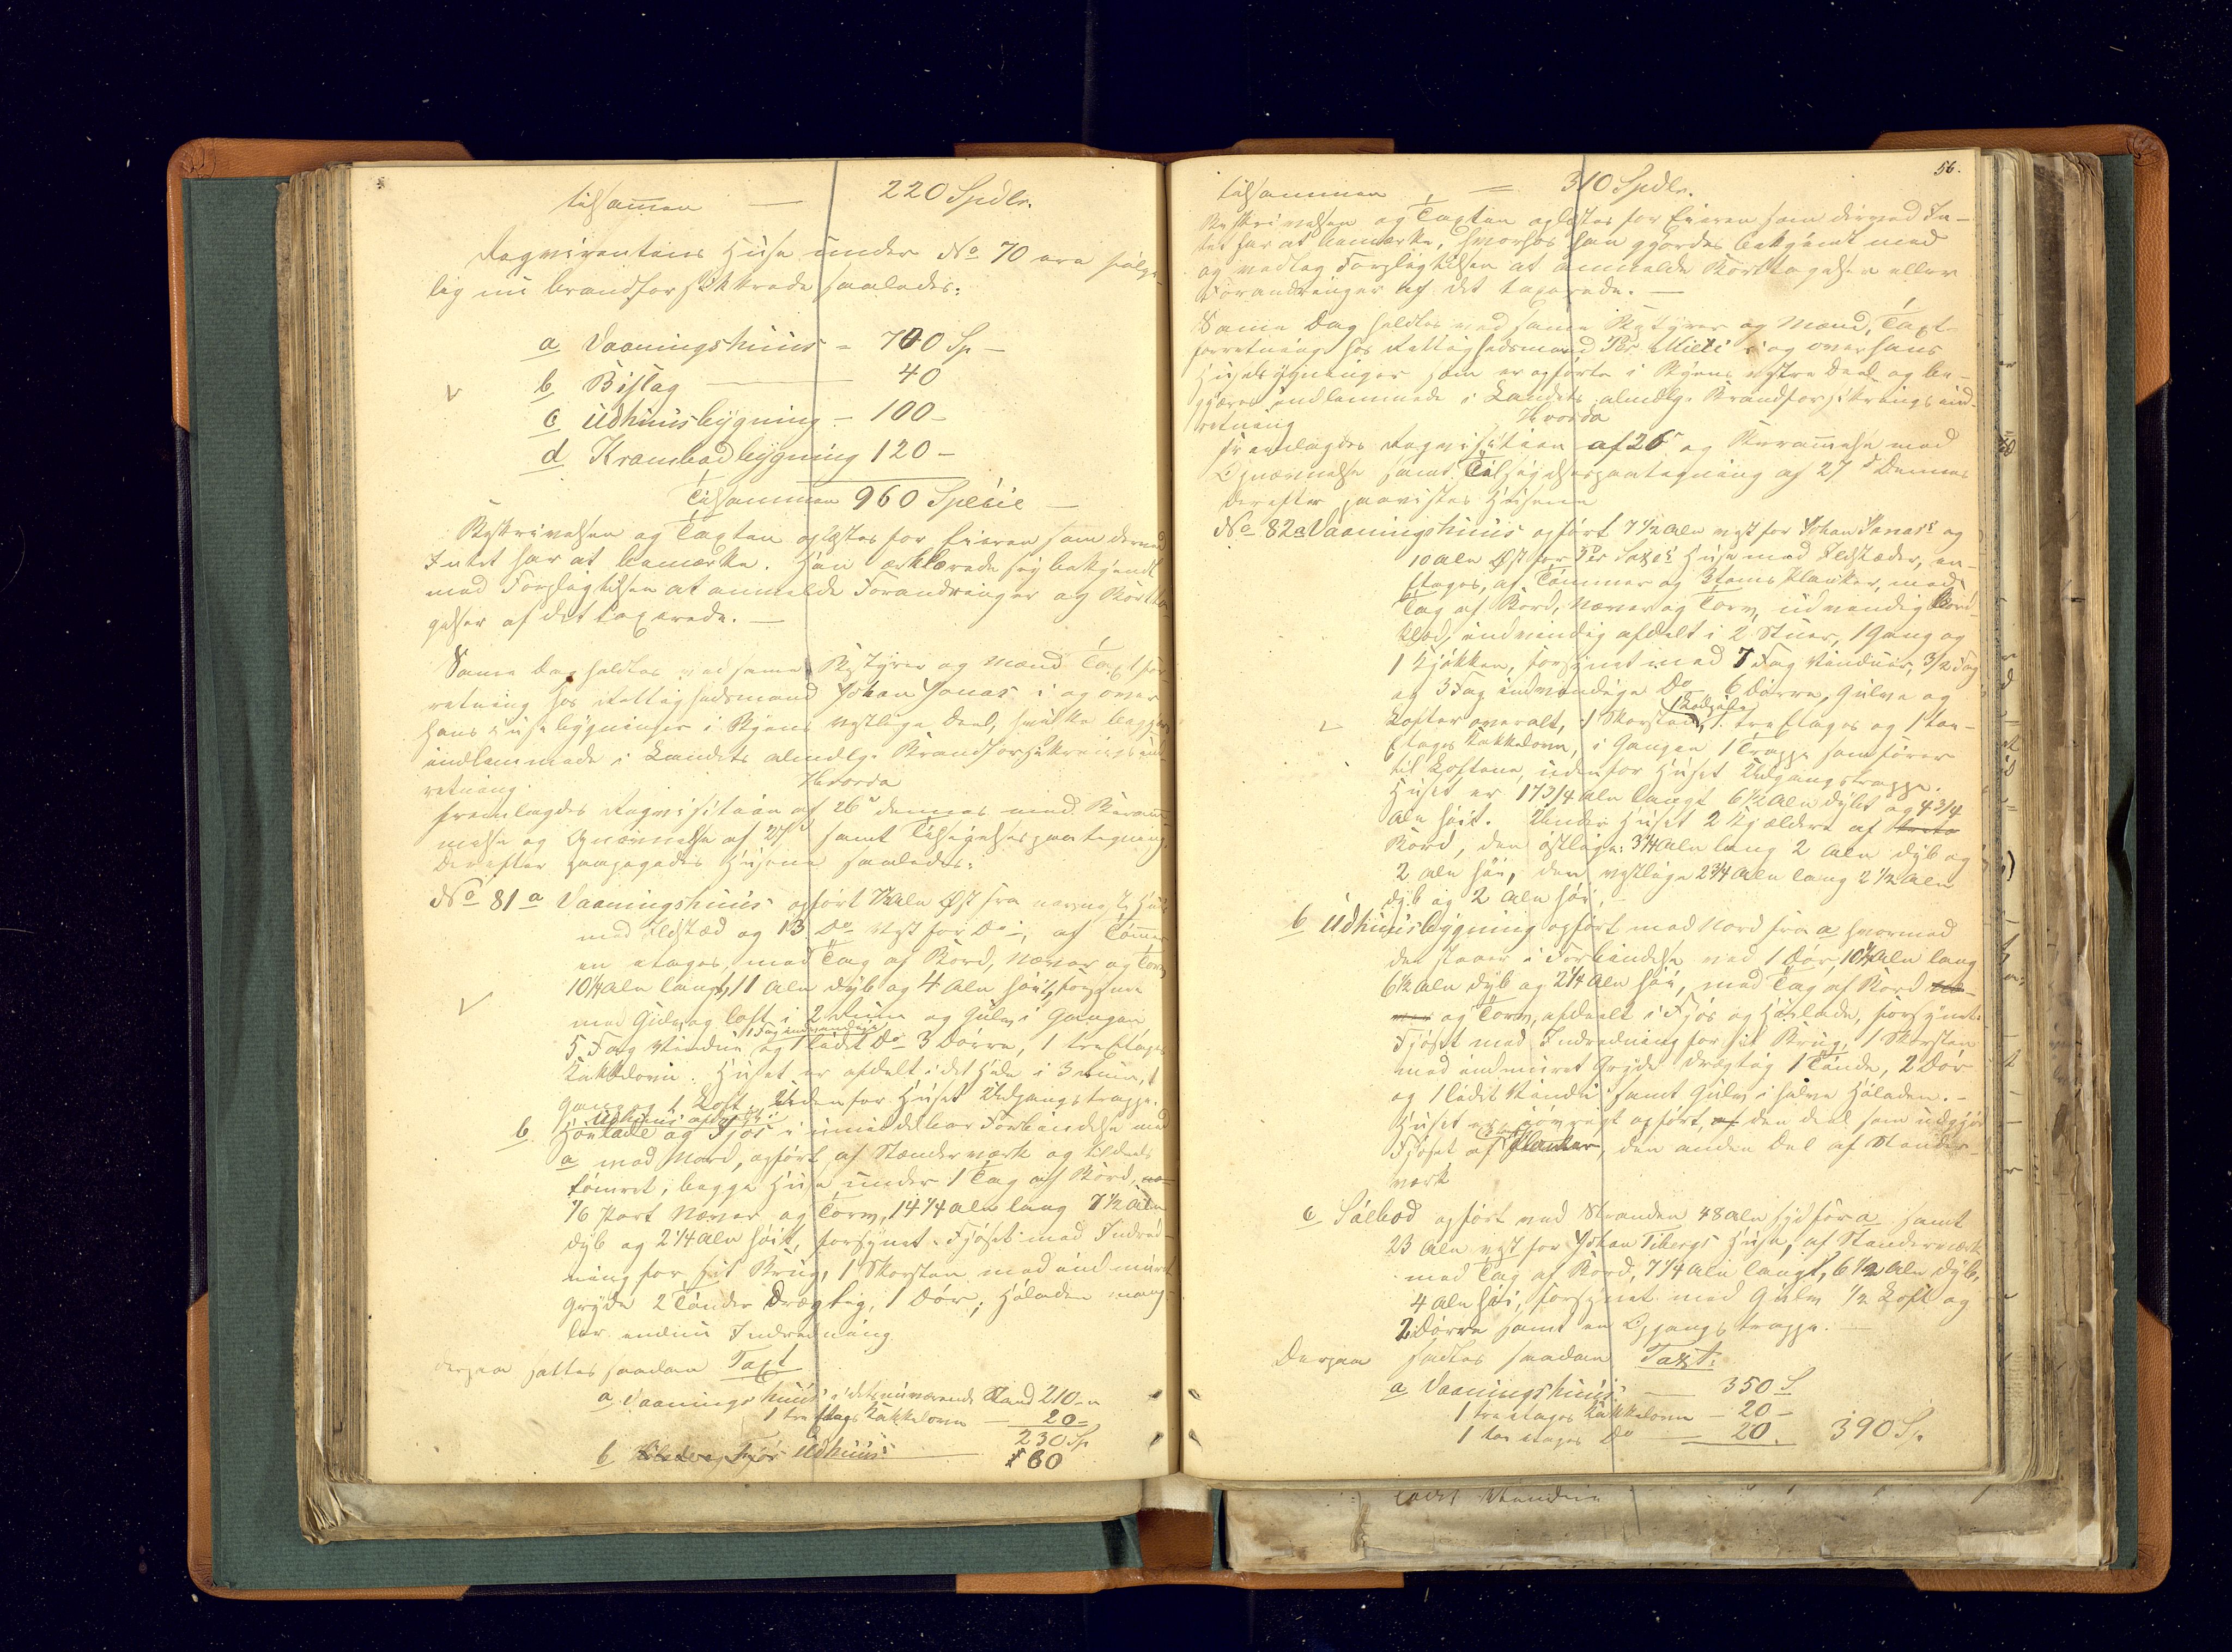 tilsammen — 220 Spdlr.
Reqvirentens Huse under No 70 ere følge-
lig nu brandforsikkrede saaledes:
a Vaaningshuus = 700 Sp —
b Bislag — 40
c Udhuusbygning — 100 —
d Krambodbygning 120 —
Tilsammen 960 Specie —
Beskrivelsen og Taxten oplæstes for Eieren som derved
Intet har at bemærke. Han erklærede sig bekjendt
med Forpligtelsen at anmelde Forandringer og Borttta-
gelser af det taxerede. —
Samme Dag holdtes ved samme Bestyrer og Mænd Taxtfor-
retning hos Rettighedsmand Johan Jonas i og over
hans Huusbygninger i Byens vestlige Deel, hvilke begges
indlemmede i Landets almdlg. Brandforsikkringsind-
retning.
Hvorda
fremlagdes Reqvisition af 26de dennes med Beram-
melse og Opnævnelse af 27de samt Tilsigelsespaategning.
Derefter paapegedes Husene saaledes:
No 81 a Vaaningshuus opført 7½ Aln Øst fra nærmeste Huus
med Ildsted og 13 Do Vest for Do; af Tømmer
en etages, med Tag af Bord, Næver og Torv
10¼ Aln langt, 11 Aln dyb og 4 Aln høit, forsynet
med Gulv og Loft i 2 Rum og Gulv i Gangen
1 Fag indvendige
5 Fag Vinduer og 1 lidet Do 3 Dørre, 1 tre Etages
Kakkelovn. Huset er afdelt i det Hele i 3 Rum, 1
Gang og 1 Loft. Udenfor Huset Udgangstrappe.
Udhuus afdelt i
b Hølade og Fjøs i umiddelbar Forbindelse med
a mod Nord, opført af Stænderværk og tildeels
tømret, begge Huse under 1 Tag af Bord,
1/6 Part Næver og Torv, 14¼ Aln lang 7½ Aln
dyb og 2¼ Aln høit, forsynet Fjøset med Indred-
ning for sit Brug, 1 Skorsten med indmuret
Gryde 2 Tønder Drægtig, 1 Dør; Høladen mang-
ler endnu Indredning.
Derpaa sattes saadan Taxt
a Vaaningshuus i dets nuværende Stand 210 —
1 tre Etages Kakkelovn — 20 =
230 Sp
b Udhuus — 80
56.
tilsammen = 310 Spdlr.
Beskrivelsen og Taxten oplæstes for Eieren som derved In-
tet har at bemærke, hvorhos han gjordes bekjendt med
og vedtog Forpligtelsen at anmelde Borttagelsen eller
Forandringer af det taxerede. —
Samme Dag holdtes ved samme Bestyrer og Mænd, Taxt-
forretning hos Rettighedsmand Per Mieti i og over hans
Huusbygninger som er opførte i Byens vestre Deel og be-
gjæres indlemmede i Landets almdlg. Brandforsikringsind-
retning
Hvorda
fremlagdes Reqvisition af 26de og Berammelse med
Opnævnelse samt Tilsigelsespaategning af 27de Dennes
Derefter paavistes Husene
No 82 a Vaaningshuus opført 7½ Aln vest for Johan Jonas's og
10 Aln Øst for Per Huse med Ildsteder, en-
etages, af Tømmer og 3 toms Planker, med
Tag af Bord, Næver og Torv, udvendig Bord-
klæd, indvendig afdelt i 2 Stuer, 1 Gang og
1 Kjøkken, forsynet med 7 Fag Vinduer, 3/2 Fag
og 3 Fag indvendige Do 6 Dørre, Gulve og
Lofter overalt, 1 Skorsten, 1 tre Etages og 1 toe-
Etages Kakkelovn, i Gangen 1 Trappe som fører
til Lofterne, uden for Huset Udgangstrappe.
Huset er 17 3/4 Aln langt 6½ Aln dybt og 4 3/4
Aln høit. Under Huset 2 Kjældere af
Bord, den østlige: 3¼ Aln lang 2 Aln dyb og
2 Aln høi, den vestlige 2¾ Aln lang 2½ Aln
dyb og 2 Aln høi. —
b Udhuusbygning opført mod Nord fra a hvormed
den staaer i Forbindelse ved 1 Dør, 10¼ Aln lang
6½ Aln dyb og 2¼ Aln høi, med Tag af Bord
og Torv, afdeelt i Fjøs og Hølade, forsynet
Fjøset med Indredning for sit Brug, 1 Skorsten
med indmuret Gryde drægtig 1 Tønde, 2 Dør
og 1 lidet Vindu samt Gulv i halve Høladen. —
Huset er iøvrigt opført, den Deel som udgjør
Fjøset af , den anden Del af Stænder-
værk
c Søebod opført ved Stranden 48 Aln syd for a samt
23 Aln vest for Johan Tibergs Huse, af Stænderværk
med Tag af Bord, 7¼ Aln langt, 6½ Aln dyb,
4 Aln høi, forsynet med Gulv ½ Loft og
2 Dørre samt en Opgangstrappe.
Derpaa sattes saadan Taxt:
a Vaaningshuus — 350 S
1 tre etages Kakkelovn — 20 —
1 toe etages Do — 20. 390 Sp.
lidet Vindue